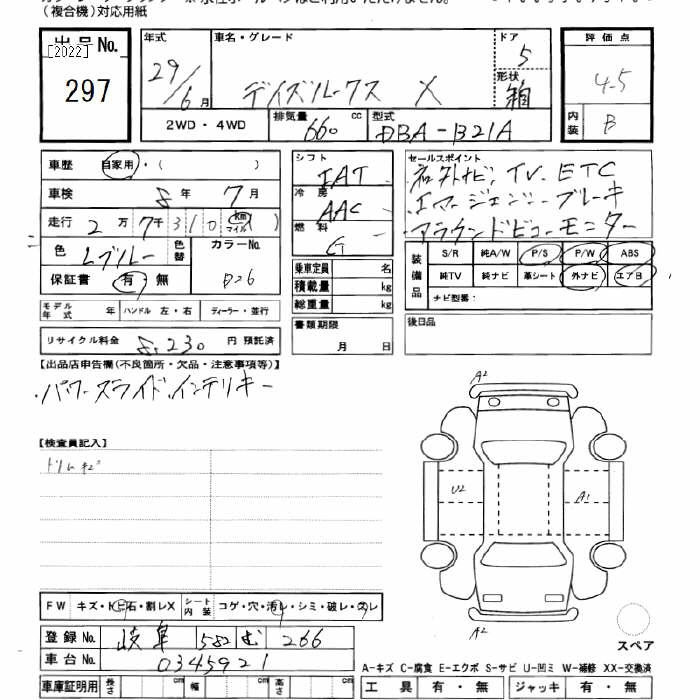 (複合機)対応用紙
出品No.
[2022]
297
年式 29/6月
車名・グレード デイズルークス X
ドア 5
形状 箱
評価点 4.5
内装 B
2WD・4WD
排気量 660 cc
型式 DBA-B21A
車歴 自家用・( )
車検 8年 7月
走行 2万7千310 (km マイル)
色 Lブルー 色替
カラーNo. B26
保証書 有・無
モデル年式 年 ハンドル 左・右 ディーラー・並行
リサイクル料金 8,230 円 預託済
シフト IAT
冷房 AAC
燃料 G
乗車定員 名
積載量 kg
総重量 kg
書類期限 月 日
セールスポイント
社外ナビ、TV、ETC
・エマージェンシーブレーキ
・アラウンドビューモニター
装備品
S/R 純A/W P/S P/W ABS
純TV 純ナビ 革シート 外ナビ エアB
ナビ型番:
後日品
【出品店申告欄(不良箇所・欠品・注意事項等)】
・パワースライド、インテリキー
【検査員記入】
ドリムキズ
A2
U2
A1
A2
FW キズ・トビ石・割レX シート内装 コゲ・穴・汚レ・シミ・破レ・スレ
登録No. 岐阜 582 む 266
車台No. 0345921
スペア
A-キズ C-腐食 E-エクボ S-サビ U-凹ミ W-補修 XX-交換済
車庫証明用 長さ cm 幅 cm 高さ cm
工具 有・無 ジャッキ 有・無